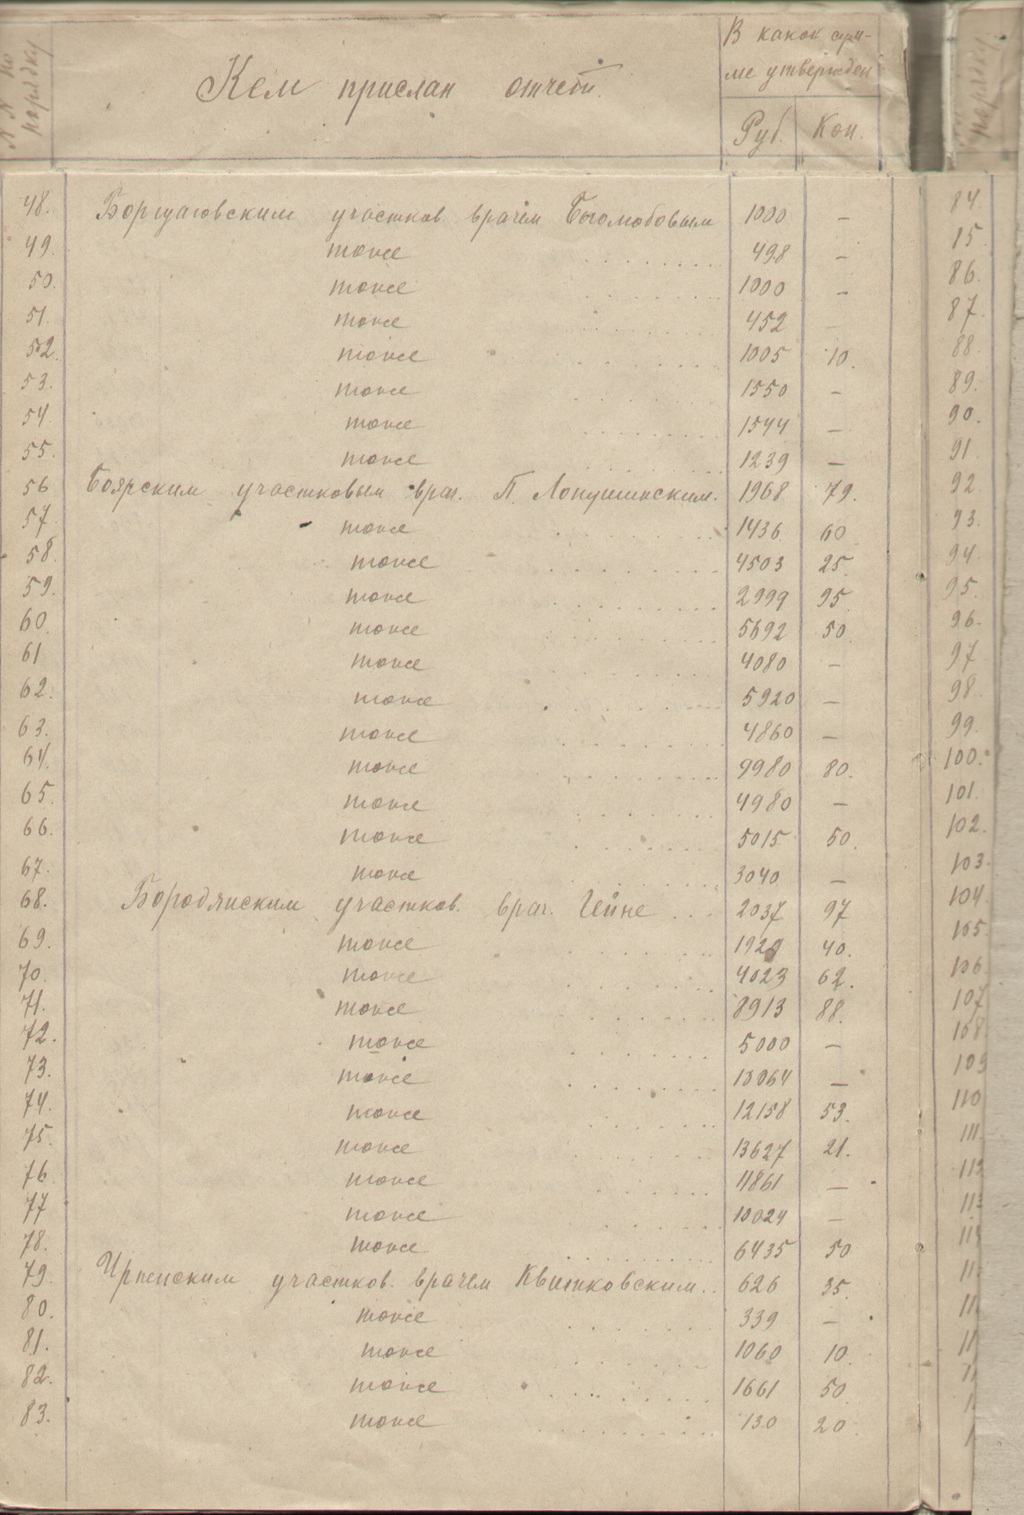 № № по порядку
Кем прислан отчет.
В какой сум-
ме утвержден
Руб. Коп.
48. Борщаговским участков. врачем Богомобовым 1000 —
49. тоже 498 —
50. тоже 1000 —
51. тоже 452
52. тоже 1005 10.
53. тоже 1550 —
54. тоже 1544 —
55. тоже 1239 —
56 Боярским участковым врач. П. Лопушинским. 1968 79.
57. тоже 1436 60
58. тоже 4503 25.
59. тоже 2999 95
60. тоже 5692 50
61 тоже 4080 —
62. тоже 5920 —
63. тоже 4860 —
64. тоже 9980 80.
65. тоже 4980 —
66. тоже 5015 50.
67. тоже 3040 —
68. Бородянским участков. врач. Гейне ... 2037 97
69. тоже 1929 40.
70. тоже 4023 62.
71. тоже 8913 88.
72. тоже 5000 —
73. тоже 13064 —
74. тоже 12158 53.
75. тоже 13627 21.
76 тоже 11861 —
77 тоже 10024 —
78. тоже 6435 50
79. Ирпенским участков. врачем Квитковским.. 626 35.
80. тоже 339 —
81. тоже 1060 10.
82. тоже 1661 50.
83. тоже 130 20.
порядку
84.
85
86.
87.
88.
89.
90.
91
92
93.
94.
95.
96.
97
98.
99.
100.
101.
102.
103.
104.
105
106
107
108
109
110
111.
112
113